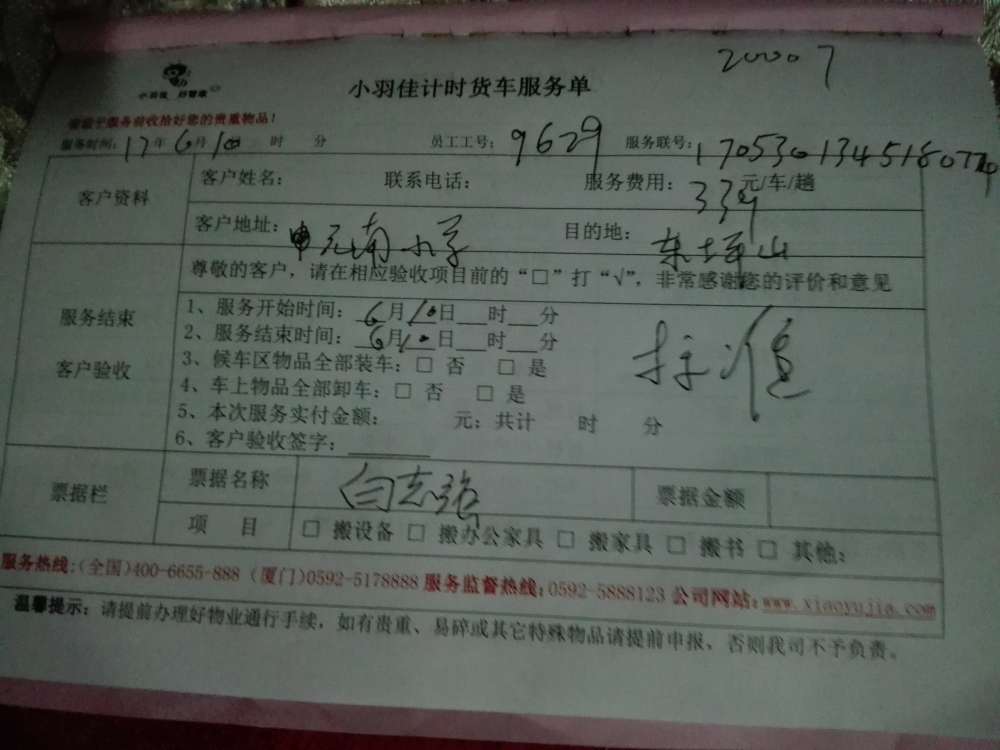 20007
小羽佳 好管家
小羽佳计时货车服务单
请在服务前收拾好您的贵重物品！
服务时间：17年6月10 时 分 员工工号：9629 服务联号：
客户资料 客户姓名： 联系电话： 服务费用：339元/车/趟
客户地址： 南小学 目的地：东坪山
尊敬的客户，请在相应验收项目前的“□”打“√”，非常感谢您的评价和意见
服务结束
客户验收
1、服务开始时间：6月10日___时___分
2、服务结束时间：6月10日___时___分
3、候车区物品全部装车：□ 否 □ 是
4、车上物品全部卸车：□ 否 □ 是
5、本次服务实付金额： 元；共计 时 分
6、客户验收签字：
票据栏 票据名称 白志强 票据金额
项 目 □ 搬设备 □ 搬办公家具 □ 搬家具 □ 搬书 □ 其他：
服务热线：(全国)400-6655-888 (厦门)0592-5178888 服务监督热线：0592-5888123 公司网站：www.xiaoyujia.com
温馨提示：请提前办理好物业通行手续，如有贵重、易碎或其它特殊物品请提前申报，否则我司不予负责。